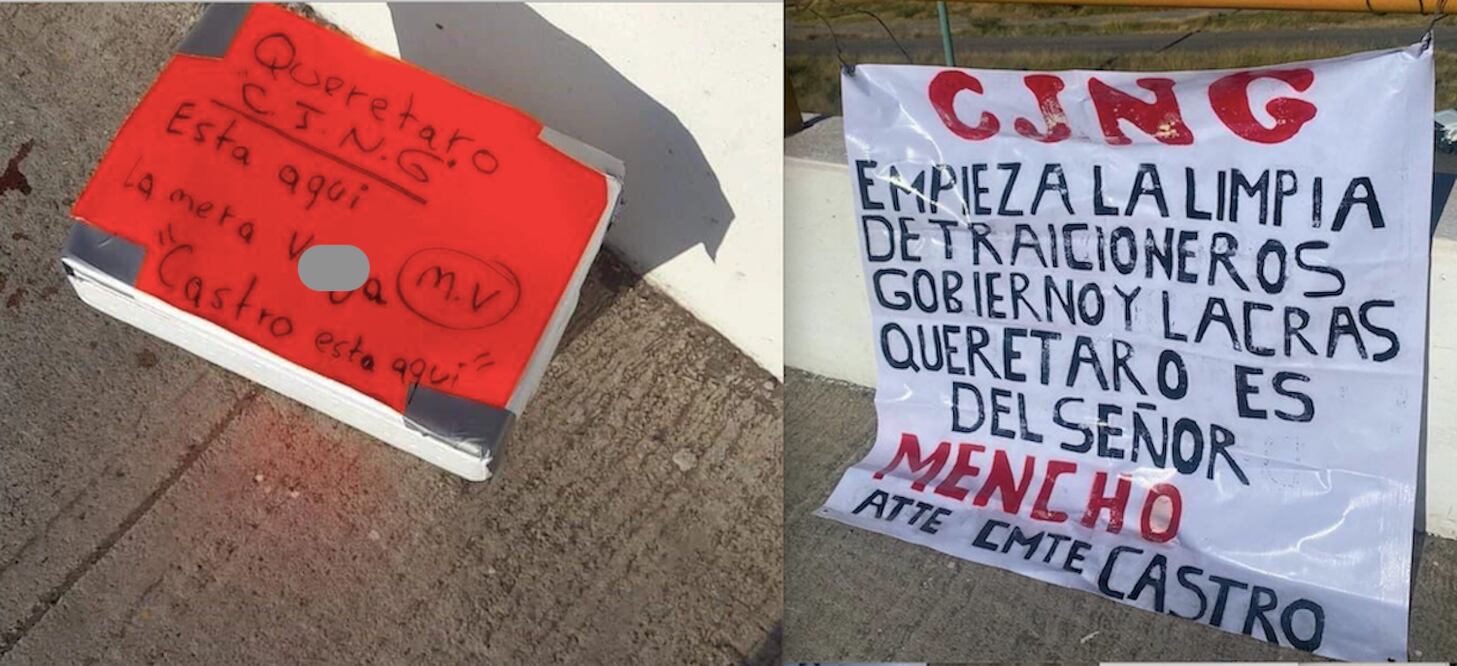 Queretaro
"C.J.N.G."
Esta aqui
la mera
M.V
"Castro esta aqui"
CJNG
EMPIEZA LA LIMPIA
DE TRAICIONEROS
GOBIERNO Y LACRAS
QUERETARO ES
DEL SEÑOR
MENCHO
ATTE CMTE CASTRO